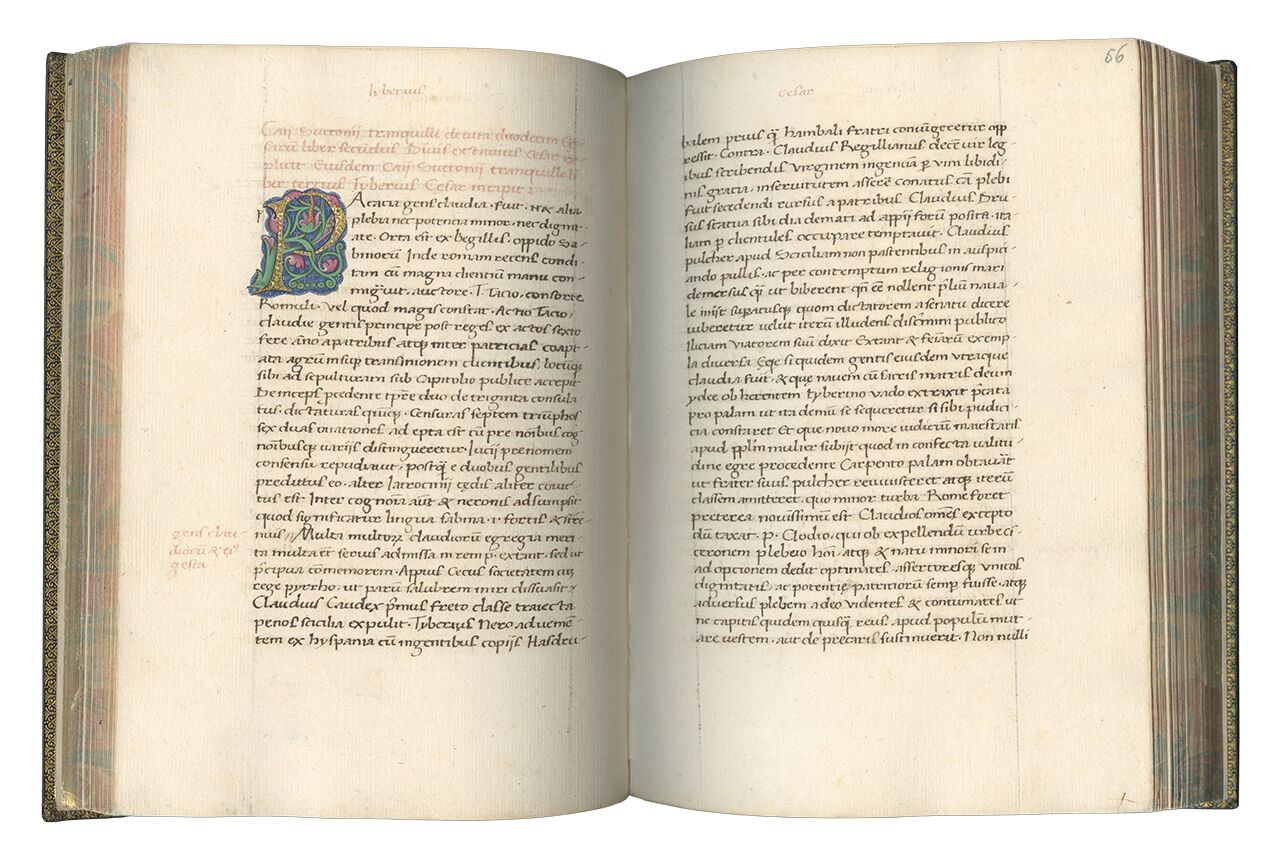 Tyberius
Caii Suetonii tranquilli de vita duodecim Ce-
sarum liber secundus Divus octavius Cesar ex-
plicit Eiusdem Caii Suetonii tranquilli li-
ber tertius Tyberius Cesar incipit
PAtricia gens claudia fuit. N& alia
plebeia nec potencia minor. nec dignit-
ate. Orta est ex Regillis. oppido Sa-
binorū Inde romam recens condi-
tam cū magna clientiū manu com-
migravit. auctore. T. Tacio, consorte
Romuli. vel quod magis constat. Actio Tacio,
claudie gentis principe post reges exactos sexto
fere āno a patribus atq; inter patricias coapt-
ata agrū insup transinionem clientibus, locūq;
sibi ad sepulturam sub Capitolio publice accepit
Deinceps
duo de triginta consula-
tus. dictaturas quinq;. Censuras septem triūphos
sex duas ovationes adepta est cū
noībusq; varijs distingueretur. Lucij prenomem
consensu repudiavit, postq̄ e duobus gentilibus
preditus eo. alter latrocinij cedis aliter convic-
tus est Inter cognomīa aūt & neronis adsumpsit
quod significatur lingua sabina. v. fortis & stre-
nuus // Multa multorꝝ claudiorū egregia meri-
ta multa et̄ secius admissa in rem p. extant. sed ut
precipua cōmemorem. Appius Cecus societatem cū
rege pyrrho. ut parū salubrem iniri dissuasit
Claudius Caudex pʳmus freto classe traiecta
penos scicilia expulit. Tyberius Nero advenien-
tem ex hyspania cū ingentibus copijs Hasdru-
gens clau-
diorū & eius
gesta
Cesar
56
balem prius q̄ hambali fratri coniūgeretur opp-
ressit. Contra. Claudius Regillianus decēvir leg-
ibus scribendis virginem ingenuā p vim libidi-
nis gracia, in servitutem assere conatus cā plebi
fuit secedendi rursus a patribus Claudius Dru-
sus statua sibi diademati ad appij forū posita. ita
liam p clientules occupare temptavit. Claudius
pulcher apud Sciciliam non pascentibus in auspici-
ando pullis. ac per contemptum religionis mari
demersus q̄ ut biberent qn̄ eē nollent prliū nava-
le inijt supatusq; quom dictatorem a senatu dicere
iuberetur velut iterū illudens discrimīn publico
Iliciam viatorem suū dixit Extant & feīarū exemp-
la diversa Eque si quidem gentis eiusdem utraque
claudia fuit. & que navem cū sacris matris deum
ydee obherentem tyberino vado extraxit
pro palam ut ita demū se sequeretur si sibi pudici-
cia constaret Et que novo more iudiciū maiestatis
apud pplm̄ mulier subijt quod in confecta
dine egre procedente Carpento palam obtavāt
ut frater suus pulcher revivisceret atq; iterū
classem amitteret. quo minor turba Rome foret
preterea novissimū est Claudios omēs excepto
dū taxat. p. Clodio, qui ob expellendū urbe ci-
ceronem plebeio hōmi, atq; & natu minori se in
adopcionem dedit optimates. assertoresq; unicos
dignitatis, ac potentię patriciorū semp fuisse. atq;
adversus plebem adeo videntes & contumates ut
ne capitis quidem quisq̄ reus apud populū mut-
are vestem. aut deprecaris sustinuerit. Non nulli